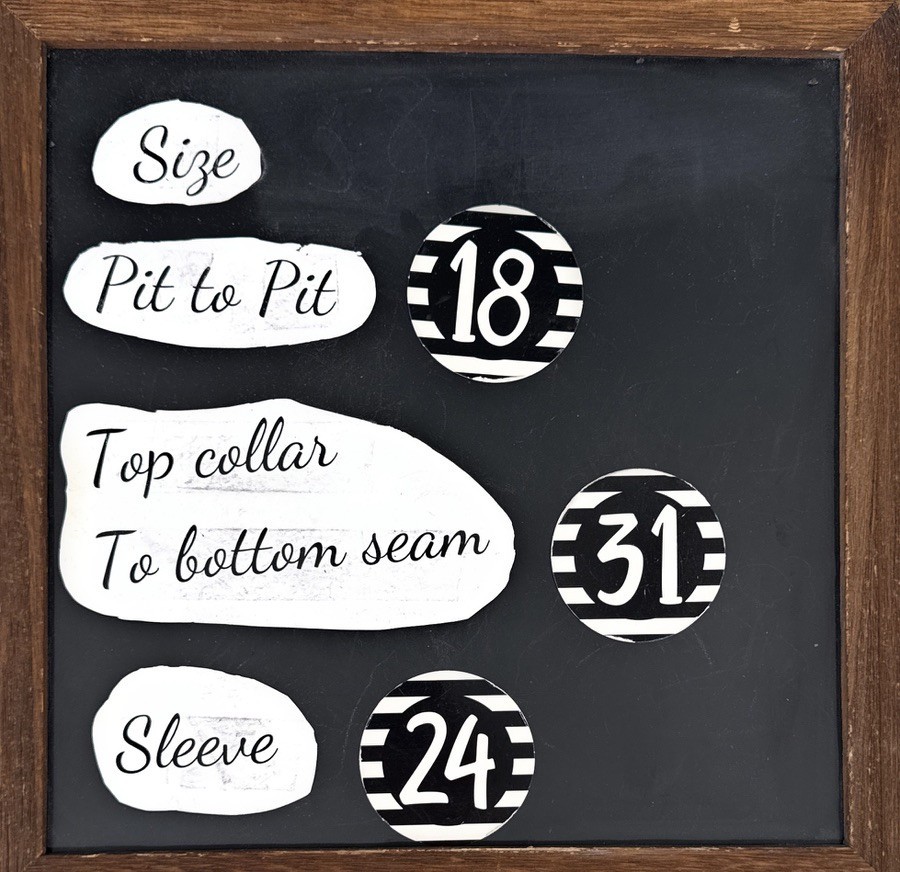 Size
Pit to Pit 18
Top collar
To bottom seam 31
Sleeve 24